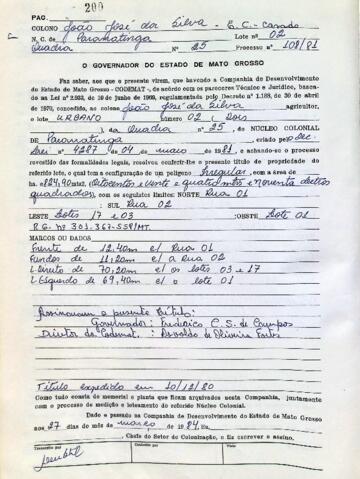 PAG. 200
COLONO João José da Silva - E.C. - Casado
N. C. de Paranatinga LOTE no 02
Quadra N° 25 Processo n° 108/81
O GOVERNADOR DO ESTADO DE MATO GROSSO
Faz saber, aos que o presente virem, que havendo a Companhia de Desenvolvimento
do Estado de Mato Grosso - CODEMAT -, de acordo com os pareceres Técnico e Jurídico, basea-
dos na Lei nº 2.933, de 19 de junho de 1969, regulamentada pelo Decreto nº 1.188, de 30 de abril
de 1970, concedido, ao colono João José da Silva agricultor,
o lote URBANO número 02 (Dois
), da Quadra nº 25, do NÚCLEO COLONIAL
DE Paranatinga, criado pelo Dec.
Lei nº 4287 de 04 de maio de 1981, e achando-se o processo
revestido das formalidades legais, resolveu conferir-lhe o presente título de propriedade do
referido lote, o qual tem a configuração de um polígono Irregular, com a área de
ha. 824,90 mts2 (Oitocentos e vinte e quatro mts e noventa dectros
quadrados), com os seguintes limites: NORTE Rua 01
: SUL Rua 02
LESTE Lotes 17 e 03 :OESTE Lote 01
R.G. nº 303.367-SSP/MT.
MARCOS OU DADOS
Frente de 12,40m c/ Rua 01
Fundos de 11,20m c/ a Rua 02
L. Direito de 70,20m c/ os lotes 03 e 17
L. Esquerdo de 69,40m c/ o lote 01
Assinaram o presente título:
Governador: Frederico C. S. de Campos
Diretor da Codemat: Osvaldo de Oliveira Fortes
Título expedido em 10/12/80
Como tudo consta do memorial e planta que ficam arquivados nesta Companhia, juntamente
com o processo de medição e loteamento do referido Núcleo Colonial.
Dado e passado na Companhia de Desenvolvimento do Estado de Mato Grosso
aos 27 dias do mês de março de 1984. Eu,
, Chefe do Setor de Colonização, o fiz escrever e assino.
Transcrito por
Conferido por
Visto